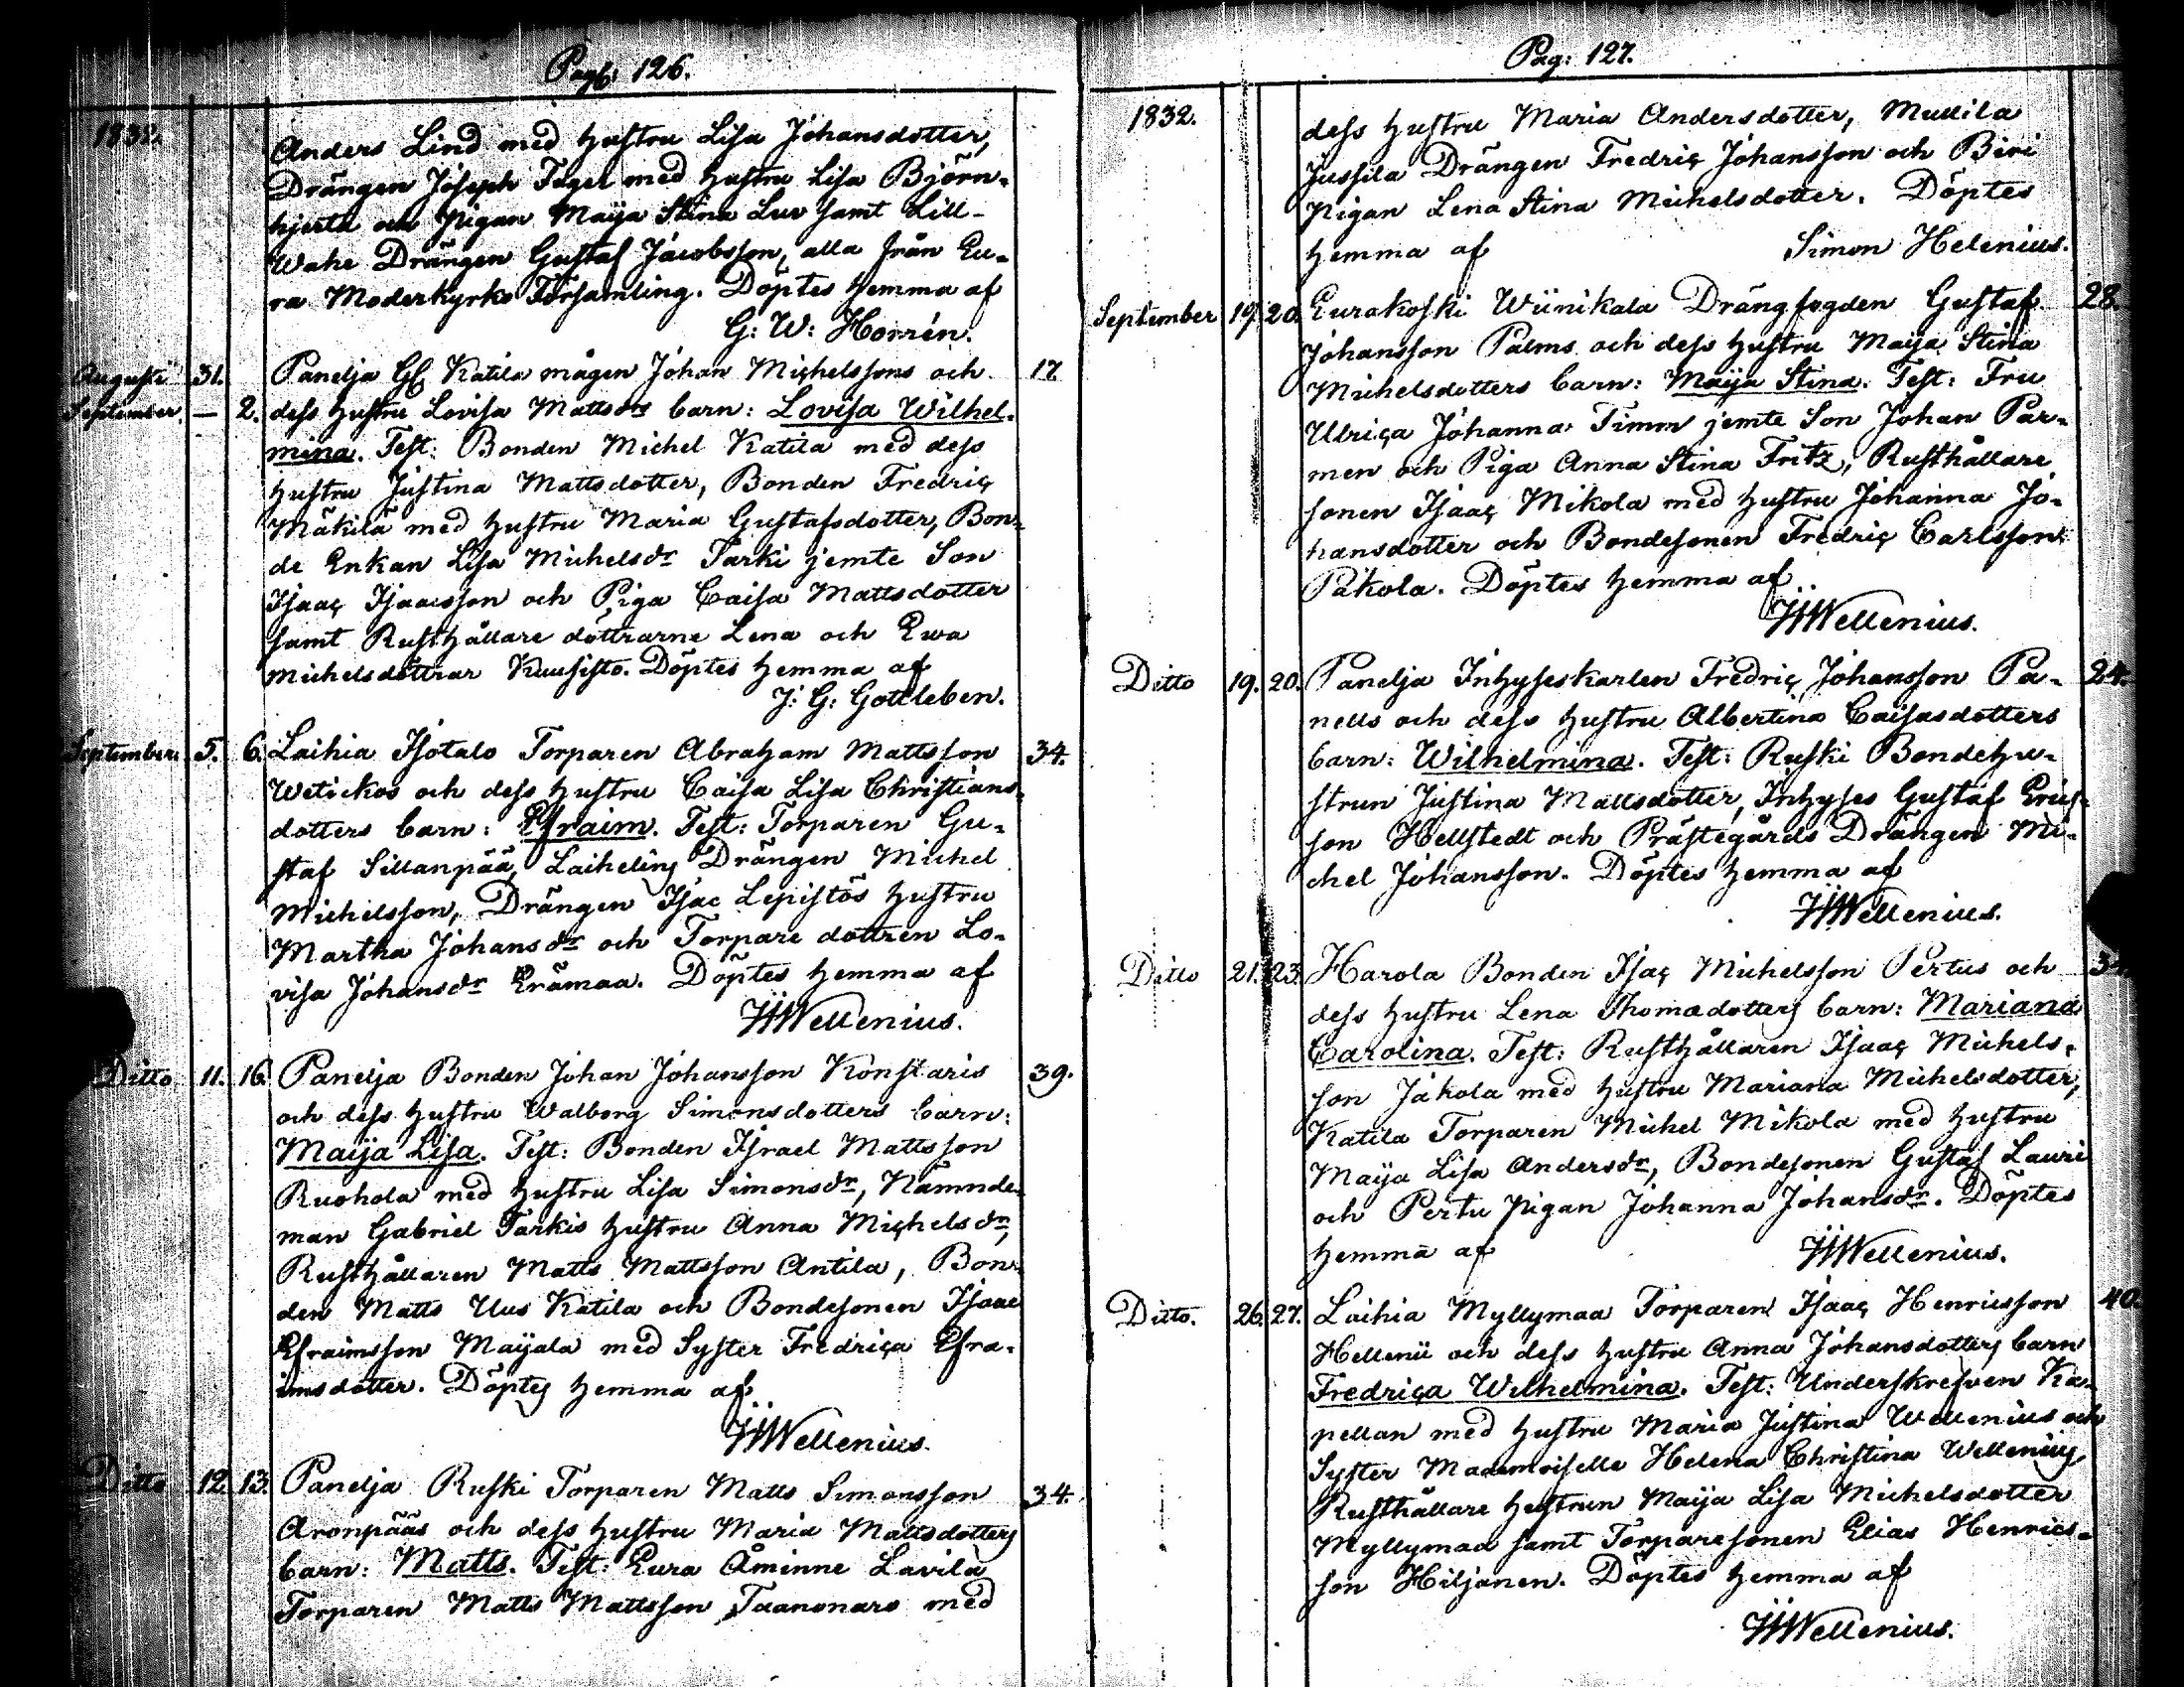 Pag: 126.
1832.
Anders Lind med hustru Lisa Johansdotter,
Drängen Joseph Fagel med hustru Lisa Björn-
hjerta och pigan Maija Stina Luv samt Lill-
Wahe Drängen Gustaf Jacobsson, alla från Eu-
ra Moderkyrko Församling. Döptes hemma af
G: W: Horrén.
Augusti 31. Panelja Katila mågen Johan Michelssons och 17.
September. — 2. dess hustru Lovisa Mattsdrs barn: Lovisa Wilhel-
mina. Test: Bonden Michel Katila med dess
hustru Justina Mattsdotter, Bonden Fredric
Mäkilä med hustru Maria Gustafsdotter, Bon-
de Enkan Lisa Michelsdr Tarki jemte Son
Isaac Isaacsson och Piga Caisa Mattsdotter
samt Rusthållare döttrarne Lena och Ewa
Michelsdöttrar Kuusisto. Döptes hemma af
J: G: Gottleben.
September. 5. 6. Laihia Isotalo Torparen Abraham Mattsson 34.
Wetickos och dess hustru Caisa Lisa Christians-
dotters barn: Efraim. Test: Torparen Gu-
staf Sillanpää, Laihelins Drängen Michel
Michelsson, Drängen Isac Lepistös hustru
Martha Johansdr och Torpare dottren Lo-
visa Johansdr Erämaa. Döptes hemma af
Wellenius.
Ditto 11. 16. Panelja Bonden Johan Johansson Konstaris 39.
och dess hustru Walborg Simonsdotters barn:
Maija Lisa. Test: Bonden Israel Mattsson
Ruohola med hustru Lisa Simonsdr, Nämnde-
man Gabriel Tarkis hustru Anna Michelsdr,
Rusthållaren Matts Mattsson Antila, Bon-
den Matts Uus Katila och Bondesonen Isaac
Efraimsson Maijala med Syster Fredrica Efra-
imsdotter. Döptes hemma af
Wellenius.
Ditto 12. 13. Panelja Ruski Torparen Matts Simonsson 34.
Aronpääs och dess hustru Maria Mattsdotters
barn: Matts. Test: Eura Åminne Lavila
Torparen Matts Mattsson Taanonaro med
Pag: 127.
1832.
dess hustru Maria Andersdotter, Mullila
Jussila Drängen Fredric Johansson och Biri
pigan Lena Stina Michelsdotter. Döptes
hemma af Simon Helenius.
September 19. 20. Eurakoski Wiinikala Drängfogden Gustaf 28.
Johansson Palms och dess hustru Maija Stina
Michelsdotters barn: Maija Stina. Test: Fru
Ulrica Johanna Timm jemte Son Johan Par-
men och Piga Anna Stina Fritz, Rusthållare
sonen Isaac Mikola med hustru Johanna Jo-
hansdotter och Bondesonen Fredric Carlsson
Pákola. Döptes hemma af
Wellenius.
Ditto 19. 20. Panelja Inhyseskarlen Fredric Johansson Pa- 24.
nells och dess hustru Albertina Caisasdotters
barn: Wilhelmina. Test: Ruski Bondehu-
strun Justina Mattsdotter, Inhyses Gustaf Erics-
son Hellstedt och Prästegårds Drängen Mi-
chel Johansson. Döptes hemma af
Wellenius.
Ditto 21. 23. Harola Bonden Isac Michelsson Pertus och 34.
dess hustru Lena Thomædotters barn: Mariana
Carolina. Test: Rusthållaren Isaac Michels-
son Jákola med hustru Mariana Michelsdotter,
Katila Torparen Michel Mikola med hustru
Maija Lisa Andersdr, Bondesonen Gustaf Lauri
och Pertu pigan Johanna Johansdr. Döptes
hemma af Wellenius.
Ditto. 26. 27. Laihia Myllymaa Torparen Isaac Henricsson 40.
Hellenii och dess hustru Anna Johansdotters barn
Fredrica Wilhelmina. Test: Underskrefven Ka-
pellan med hustru Maria Justina Wellenius och
Syster Mademoiselle Helena Christina Wellenius,
Rusthållare hustrun Maija Lisa Michelsdotter
Myllymaa samt Torparesonen Elias Henrics-
son Hiljanen. Döptes hemma af
Wellenius.